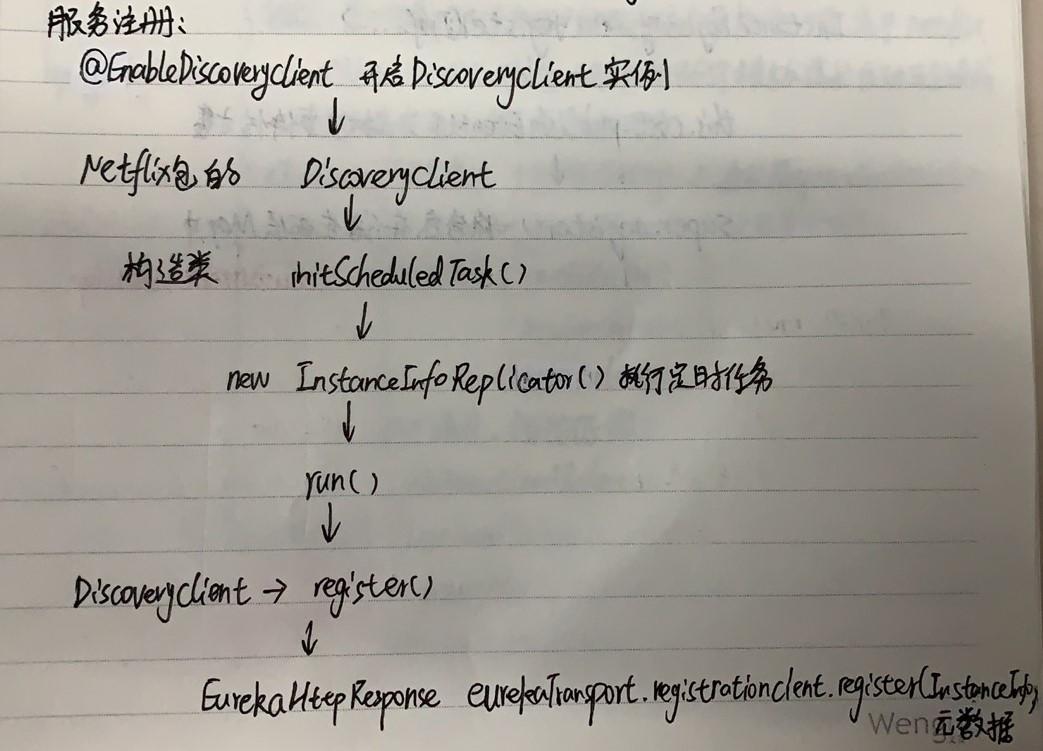 服务注册:
@EnableDiscoveryclient 开启Discoveryclient实例
↓
Netflix包的 Discoveryclient
↓
构造类 initScheduledTask()
↓
new InstanceInfoReplicator() 执行定时任务
↓
run()
↓
Discoveryclient → register()
↓
EurekaHttpResponse eurekaTransport.registrationclent.register(InstanceInfo)
元数据